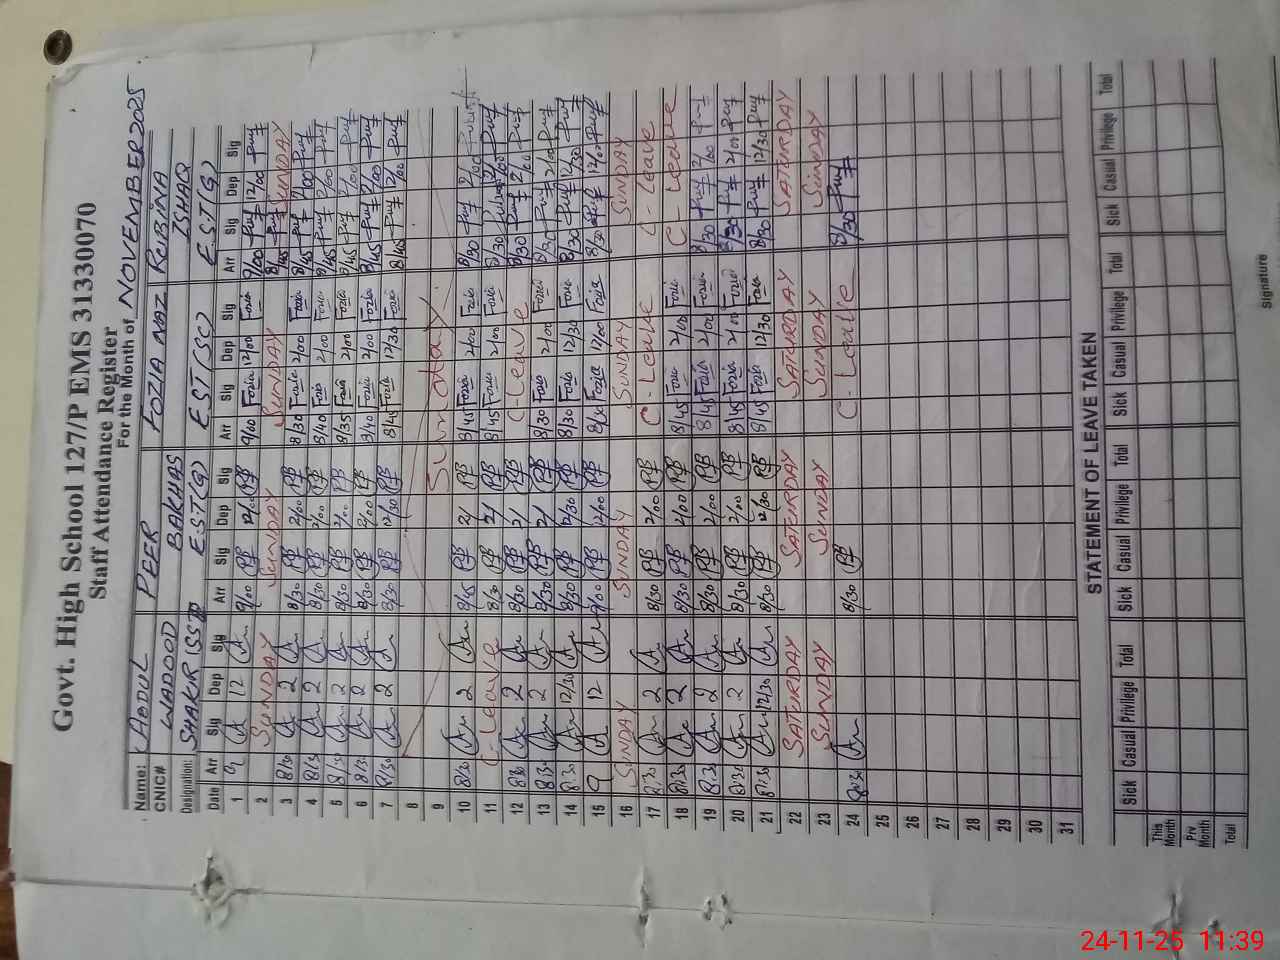 Govt. High School 127/P EMS 31330070
Staff Attendance Register
For the Month of NOVEMBER 2025
Name: ABDUL PEER FOZIA NAZ RUBINA
CNIC# WADOOD BAKHAS ISHAQ
Designation: SHAKIR SST E.S.T(G) E.S.T (SC) E.S.T(G)
Date Arr Sig Dep Sig Arr Sig Dep Sig Arr Sig Dep Sig Arr Sig Dep Sig
1 9 12 9/00 12/00 9/00 Fozia 2/00 Fozia 9/00 12/00
2 SUNDAY SUNDAY SUNDAY 8/45 SUNDAY
3 8/30 2 8/30 2/00 8/30 Fozia 2/00 Fozia 8/45
4 8/30 2 8/30 2/00 8/40 Fozia 2/00 Fozia 8/45
5 8/30 2 8/30 2/00 8/35 Fozia 2/00 Fozia 8/45
6 8/30 2 8/30 2/00 8/40 Fozia 2/00 Fozia 8/45 2/00
7 8/30 2 8/30 12/30 8/45 Fozia 12/30 Fozia 8/45 12/00
8
9 Sunday
10 8/30 2 8/45 2/ 8/45 Fozia 2/00 Fozia 8/30 2/00
11 C-Leave 8/30 2/ 8/45 Fozia 2/00 Fozia 8/30 2/00
12 8:30 2 8/30 2/ C-Leave 8/30 2/00
13 8:30 2 8/30 2/ 8/30 Fozia 2/00 Fozia 8/30 2/00
14 8:30 12/30 8/30 12/30 8/30 Fozia 12/30 Fozia 8/30 12/30
15 9 12 9/00 12/00 8/30 Fozia 12/00 Fozia 8/30 12/00
16 SUNDAY SUNDAY SUNDAY SUNDAY
17 8:30 2 8/30 2/00 C-Leave C-Leave
18 8:30 2 8/30 2/00 8/45 Fozia 2/00 Fozia C-Leave
19 8:30 2 8/30 2/00 8/45 Fozia 2/00 Fozia 8/30 2/00
20 8:30 2 8/30 2/00 8/45 Fozia 2/00 Fozia 8/30 2/00
21 8:30 12/30 8/30 12/30 8/45 Fozia 12/30 Fozia 8/30 12/30
22 SATURDAY SATURDAY SATURDAY SATURDAY
23 SUNDAY SUNDAY SUNDAY SUNDAY
24 8:30 8/30 C-Leave 8/30
25
26
27
28
29
30
31
STATEMENT OF LEAVE TAKEN
Sick Casual Privilege Total Sick Casual Privilege Total Sick Casual Privilege Total Sick Casual Privilege Total
This Month
Prv Month
Total
Signature
24-11-25 11:39